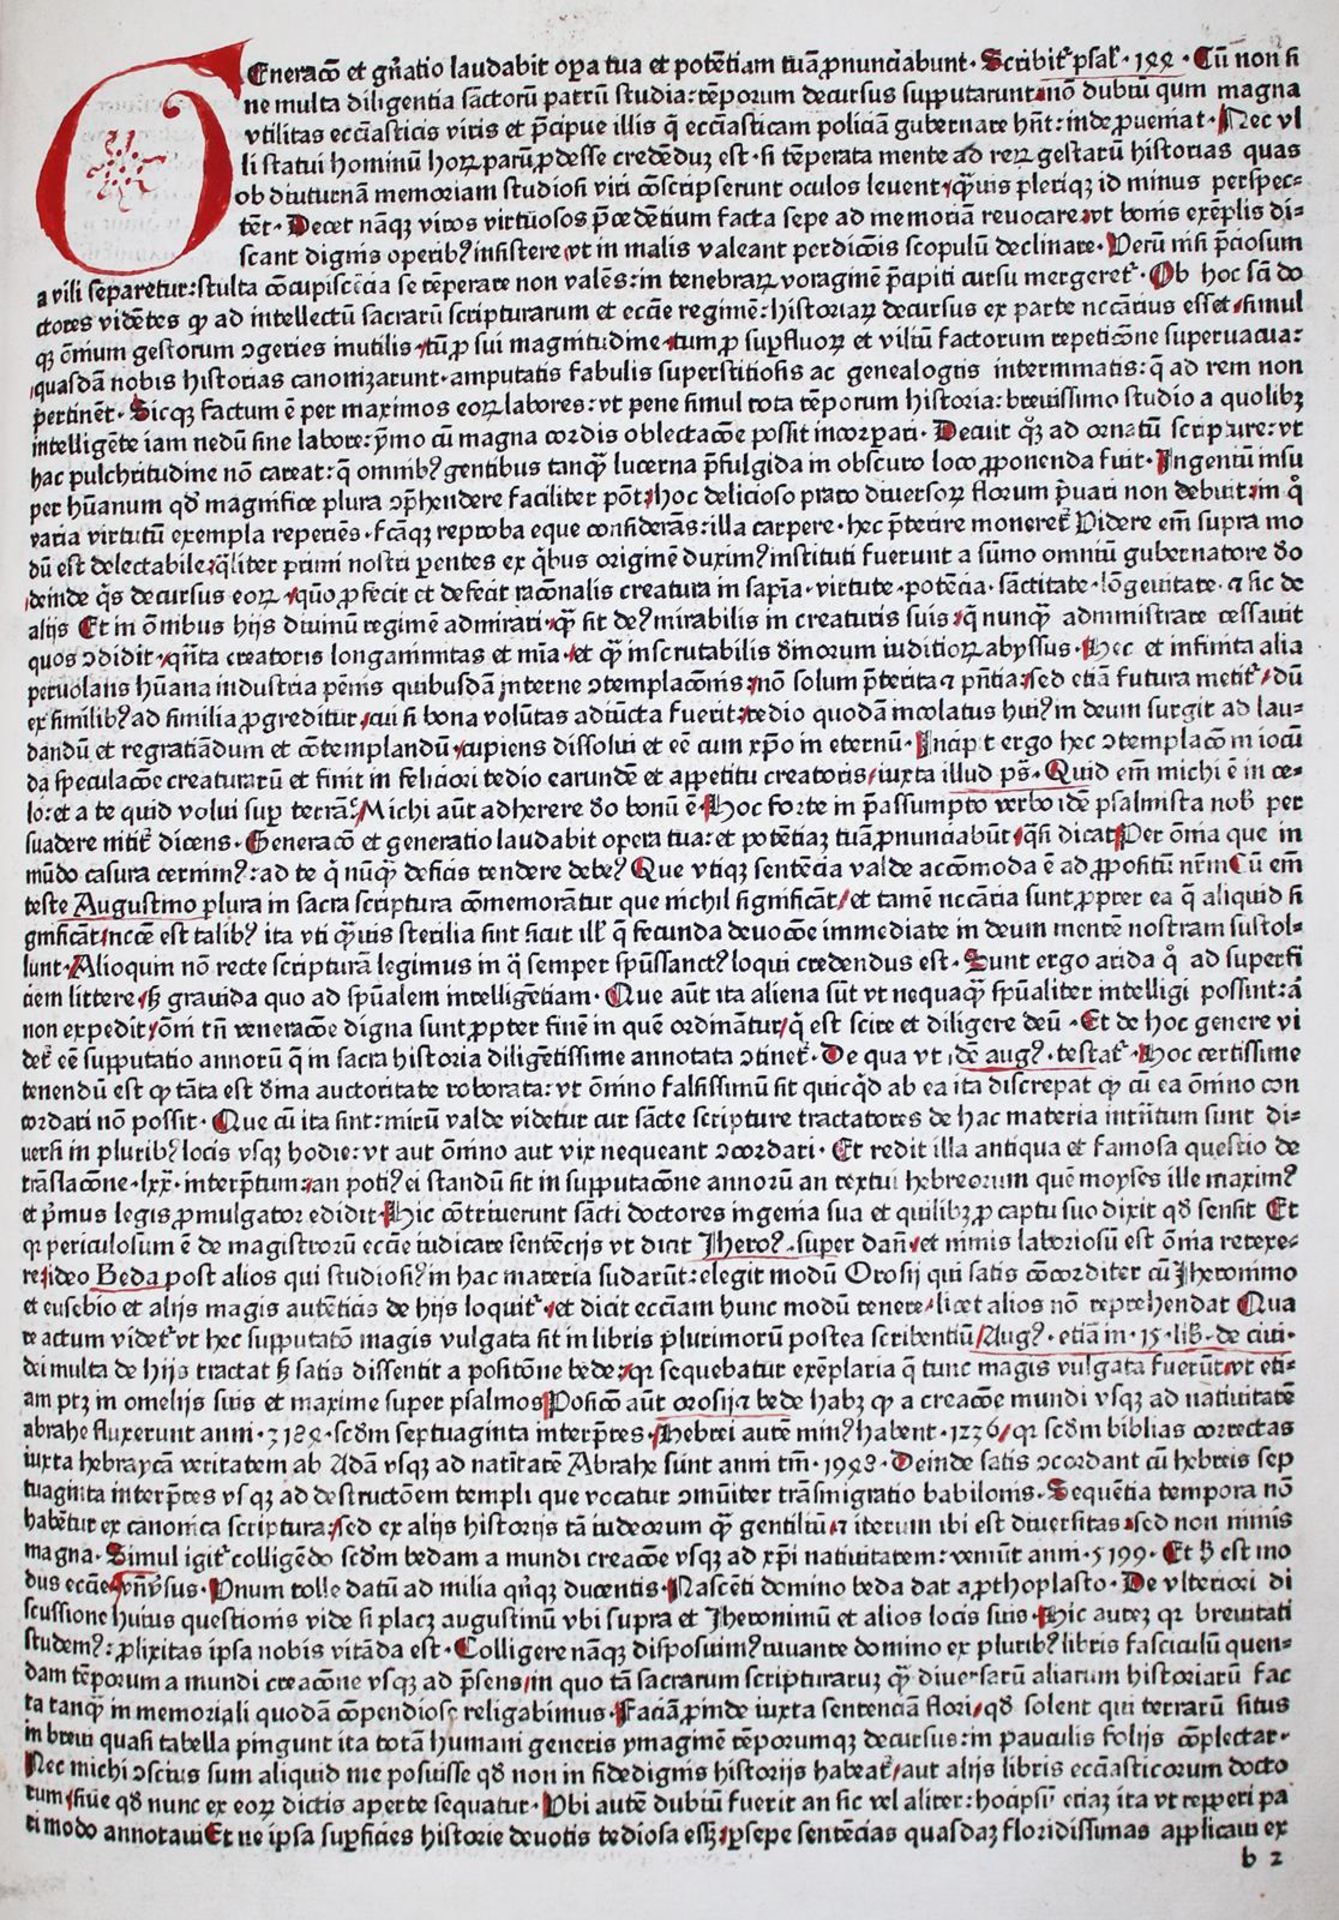 GEneracō et gn̄atio laudabit oꝑa tua et potētiam tuā ꝓnunciabunt · Scribit᷑ psal᷑ · 144 · Cū non si
ne multa diligentia sāctorū patrū studia: tēporum decursus supputarunt: nō dubiū qum magna
vtilitas eccl̄iasticis viris et p̄cipue illis q̄ eccl̄iasticam policiā gubernare hn̄t: inde ꝓueniat · Nec vl
li statui hominū hoꝝ parū ꝓdesse credēduꝫ est · si tēperata mente ad reꝝ gestarū historias quas
ob diuturnā memoriam studiosi viri cōscripserunt oculos leuent / qͣuis pleriqꝫ id minus perspec⸗
tēt · Decet nāqꝫ viros virtuosos p̄cedētium facta sepe ad memoriā reuocare / vt bonis exēplis di⸗
scant dignis operibꝰ insistere / vt in malis valeant perdicōis scopulū declinare · Verū nisi p̄ciosum
a vili separetur: stulta cōcupiscēcia se tēperare non valēs: in tenebraꝝ voragine p̄cipiti cursu mergeret᷑ · Ob hoc sā do
ctores vidētes ꝙ ad intellectū sacrarū scripturarum et eccīe regimē: historiaꝝ decursus ex parte nccārius esset / simul
qꝫ ōnium gestorum ꝯgeries inutilis / tū ꝓ sui magnitudine / tum ꝓ suꝑfluoꝝ et viliū factorum repeticōne superuacua:
quasdā nobis historias canonizarunt · amputatis fabulis superstitiosis ac genealogiis interminatis: q̄ ad rem non
pertinēt · Sicqꝫ factum ē per maximos eoꝝ labores: vt pene simul tota tēporum historia: breuissimo studio a quolibꝫ
intelligēte iam nedū sine labore: ymo cū magna cordis oblectacōe possit incorꝑari · Decuit qͦꝫ ad ornatū scripture: vt
hac pulchritudine nō careat: q̄ omnibꝰ gentibus tanqͣ lucerna p̄fulgida in obscuro loco ꝓponenda fuit · Ingeniū insu
per hūanum qd̄ magnifice plura ꝯp̄hendere faciliter pōt / hoc delicioso prato diuersoꝝ florum p̄uari non debuit / in qͦ
varia virtutū exempla reperiēs · fcāqꝫ reproba eque considerās: illa carpere · hec p̄terire moneret᷑ Videre em̄ supra mo
dū est delectabile / qͣliter primi nostri parentes ex qͥbus originē duximꝰ instituti fuerunt a sūmo omniū gubernatore deo
deinde qͥs decursus eoꝝ / quō ꝓfecit et defecit racōnalis creatura in sapīa · virtute · potēcia · sāctitate · lōgeuitate · ⁊ sic de
alijs Et in ōnibus hijs diuinū regimē admirari / qͣ sit deꝰ mirabilis in creaturis suis / q̄ nunqͣ administrare cessauit
quos ꝯdidit / qn̄ta creatoris longanimitas et mīa / et qͣ inscrutabilis diuinorum iuditioꝝ abyssus · Hec et infinita alia
peruolans hūana industria pēnis quibusdā interne ꝯtemplacōnis: nō solum p̄terita ⁊ pn̄tia: sed etiā futura metit᷑ / dū
ex similibꝰ ad similia ꝓgreditur / cui si bona volūtas adiūcta fuerit: tedio quodā incolatus huiꝰ in deum surgit ad lau⸗
dandū et regratiādum et cōtemplandū / cupiens dissolui et eē cum xp̄o in eternū · Incipit ergo hec ꝯtemplacō in iocū
da speculacōe creaturarū et finit in feliciori tedio earundē et appetitu creatoris / iuxta illud ps̄ · Quid em̄ michi ē in ce⸗
lo: et a te quid volui suꝑ terrā? / Michi aūt adherere deo bonū ē · Hoc forte in p̄assumpto verbo idē psalmista nob̄ per
suadere nitit᷑ dicens · Generacō et generatio laudabit opera tua: et potētiaꝫ tuā ꝓnunciabūt / qͣsi dicat Per ōnia que in
mūdo casura cernimꝰ: ad te q̄ nūqͣ deficis tendere debeꝰ Que vtiqꝫ sentēcia valde accōmoda ē ad ꝓpositū nr̄m Cū em̄
teste Augustino plura in sacra scriptura cōmemorātur que nichil significāt / et tamē nccāria sunt ꝓpter ea q̄ aliquid si
gnificāt / nccē est talibꝰ ita vti qͣuis sterilia sint sicut ill̄ q̄ fecunda deuocōe immediate in deum mentē nostram sustol⸗
lunt · Alioquin nō recte scripturā legimus in q̄ semper spūssanctꝰ loqui credendus est · Sunt ergo arida qͦ ad superfi
ciem littere / sꝫ grauida quo ad spūalem intelligētiam · Que aūt ita aliena sūt vt nequaqͣ spūaliter intelligi possint: ⁊
non expedit / ōni tn̄ veneracōe digna sunt ꝓpter finē in quē ordināntur / q̄ est scire et diligere deū · Et de hoc genere vi
det᷑ eē supputatio annorū q̄ in sacra historia diligētissime annotata ꝯtinet᷑ · De qua vt idē augꝰ · testat᷑ · Hoc certissime
tenendū est ꝙ tāta est diuina auctoritate roborata: vt ōnino falsissimū sit quicqͥd ab ea ita discrepat ꝙ cū ea ōnino con
cordari nō possit · Que cū ita sint: mirū valde videtur cur sācte scripture tractatores de hac materia intn̄tum sunt di⸗
uersi in pluribꝰ locis vsqꝫ hodie: vt aut ōnino aut vix nequeant ꝯcordari · Et redit illa antiqua et famosa questio de
trāslacōne · lxx · interp̄tum: an potiꝰ ei standū sit in supputacōne annorū an textui hebreorum quē moyses ille maximꝰ
et p̄mus legis ꝓmulgator edidit · Hic cōtriuerunt sācti doctores ingenia sua et quilibꝫ ꝓ captu suo dixit qd̄ sensit Et
qꝛ periculosum ē de magistrorū eccīe iudicare sentēcijs vt dicit Jheroꝰ · super dan̄ / et nimis laboriosū est ōnia retexe⸗
re / ideo Beda post alios qui studiosiꝰ in hac materia sudarūt: elegit modū Orosij qui satis cōcorditer cū Jheronimo
et eusebio et alijs magis autēticis de hijs loquit᷑ / et dicit eccl̄iam hunc modū tenere / licet alios nō reprehendat Qua
re actum videt᷑ vt hec supputatō magis vulgata sit in libris plurimorū postea scribentiū / Augꝰ · etiā in · 15 · lib̄ · de ciui⸗
dei multa de hijs tractat sꝫ satis dissentit a positōne bede / qꝛ sequebatur exēplaria q̄ tunc magis vulgata fuerūt / vt eti⸗
am ptꝫ in omelijs suis et maxime super psalmos Posicō aūt orosij ⁊ bede habꝫ ꝙ a creacōe mundi vsqꝫ ad natiuitatē
abrahe fluxerunt anni · 3184 · scd̄m septuaginta interp̄tes · Hebrei autē minꝰ habent · 1236 / qꝛ scd̄m biblias correctas
iuxta hebraycā veritatem ab Adā vsqꝫ ad natītatē Abrahe sunt anni tm̄ · 1948 · Deinde satis ꝯcordant cū hebreis sep
tuaginta interp̄tes vsqꝫ ad destructōem templi que vocatur ꝯmūiter trāsmigratio babilonis · Sequētia tempora nō
habētur ex canonica scriptura / sed ex alijs historijs tā iudeorum qͣ gentiliū ⁊ iterum ibi est diuersitas / sed non nimis
magna · Simul igit᷑ colligēdo scd̄m bedam a mundi creacōe vsqꝫ ad xp̄i natiuitatem: veniūt anni · 5199 · Et h̄ est mo
dus eccīe / vn̄ v̄sus · Vnum tolle datū ad milia qn̄qꝫ ducentis · Nascēti domino beda dat a ꝓthoplasto · De vlteriori di
scussione huius questionis vide si placꝫ augustinū vbi supra et Jheronimū et alios locis suis · Hic auteꝫ qꝛ breuitati
studemꝰ: ꝓlixitas ipsa nobis vitāda est · Colligere nāqꝫ disposuimꝰ iuuante domino ex pluribꝰ libris fasciculū quen⸗
dam tēporum a mundi creacōne vsqꝫ ad p̄sens / in quo tā sacrarum scripturaruꝫ qͣ diuersarū aliarum historiarū fac
ta tanqͣ in memoriali quodā cōpendiose religabimus · Faciā ꝓinde iuxta sentenciā flori / qd̄ solent qui terrarū situs
in breui quasi tabella pingunt ita totā humani generis ymaginē tēporumqꝫ decursus: in pauculis folijs cōplectar ·
Nec michi ꝯscius sum aliquid me posuisse qd̄ non in fidedignis historijs habeat᷑ / aut alijs libris eccl̄iasticorum docto
rum / siue qd̄ nunc ex eoꝝ dictis aperte sequatur · Vbi autē dubiū fuerit an sic vel aliter: hocipsū etiaꝫ ita vt repperi pa
ri modo annotaui Et ne ipsa suꝑficies historie deuotis tediosa esꝫ / ꝑsepe sentēcias quasdaꝫ floridissimas applicaui ex
b 2